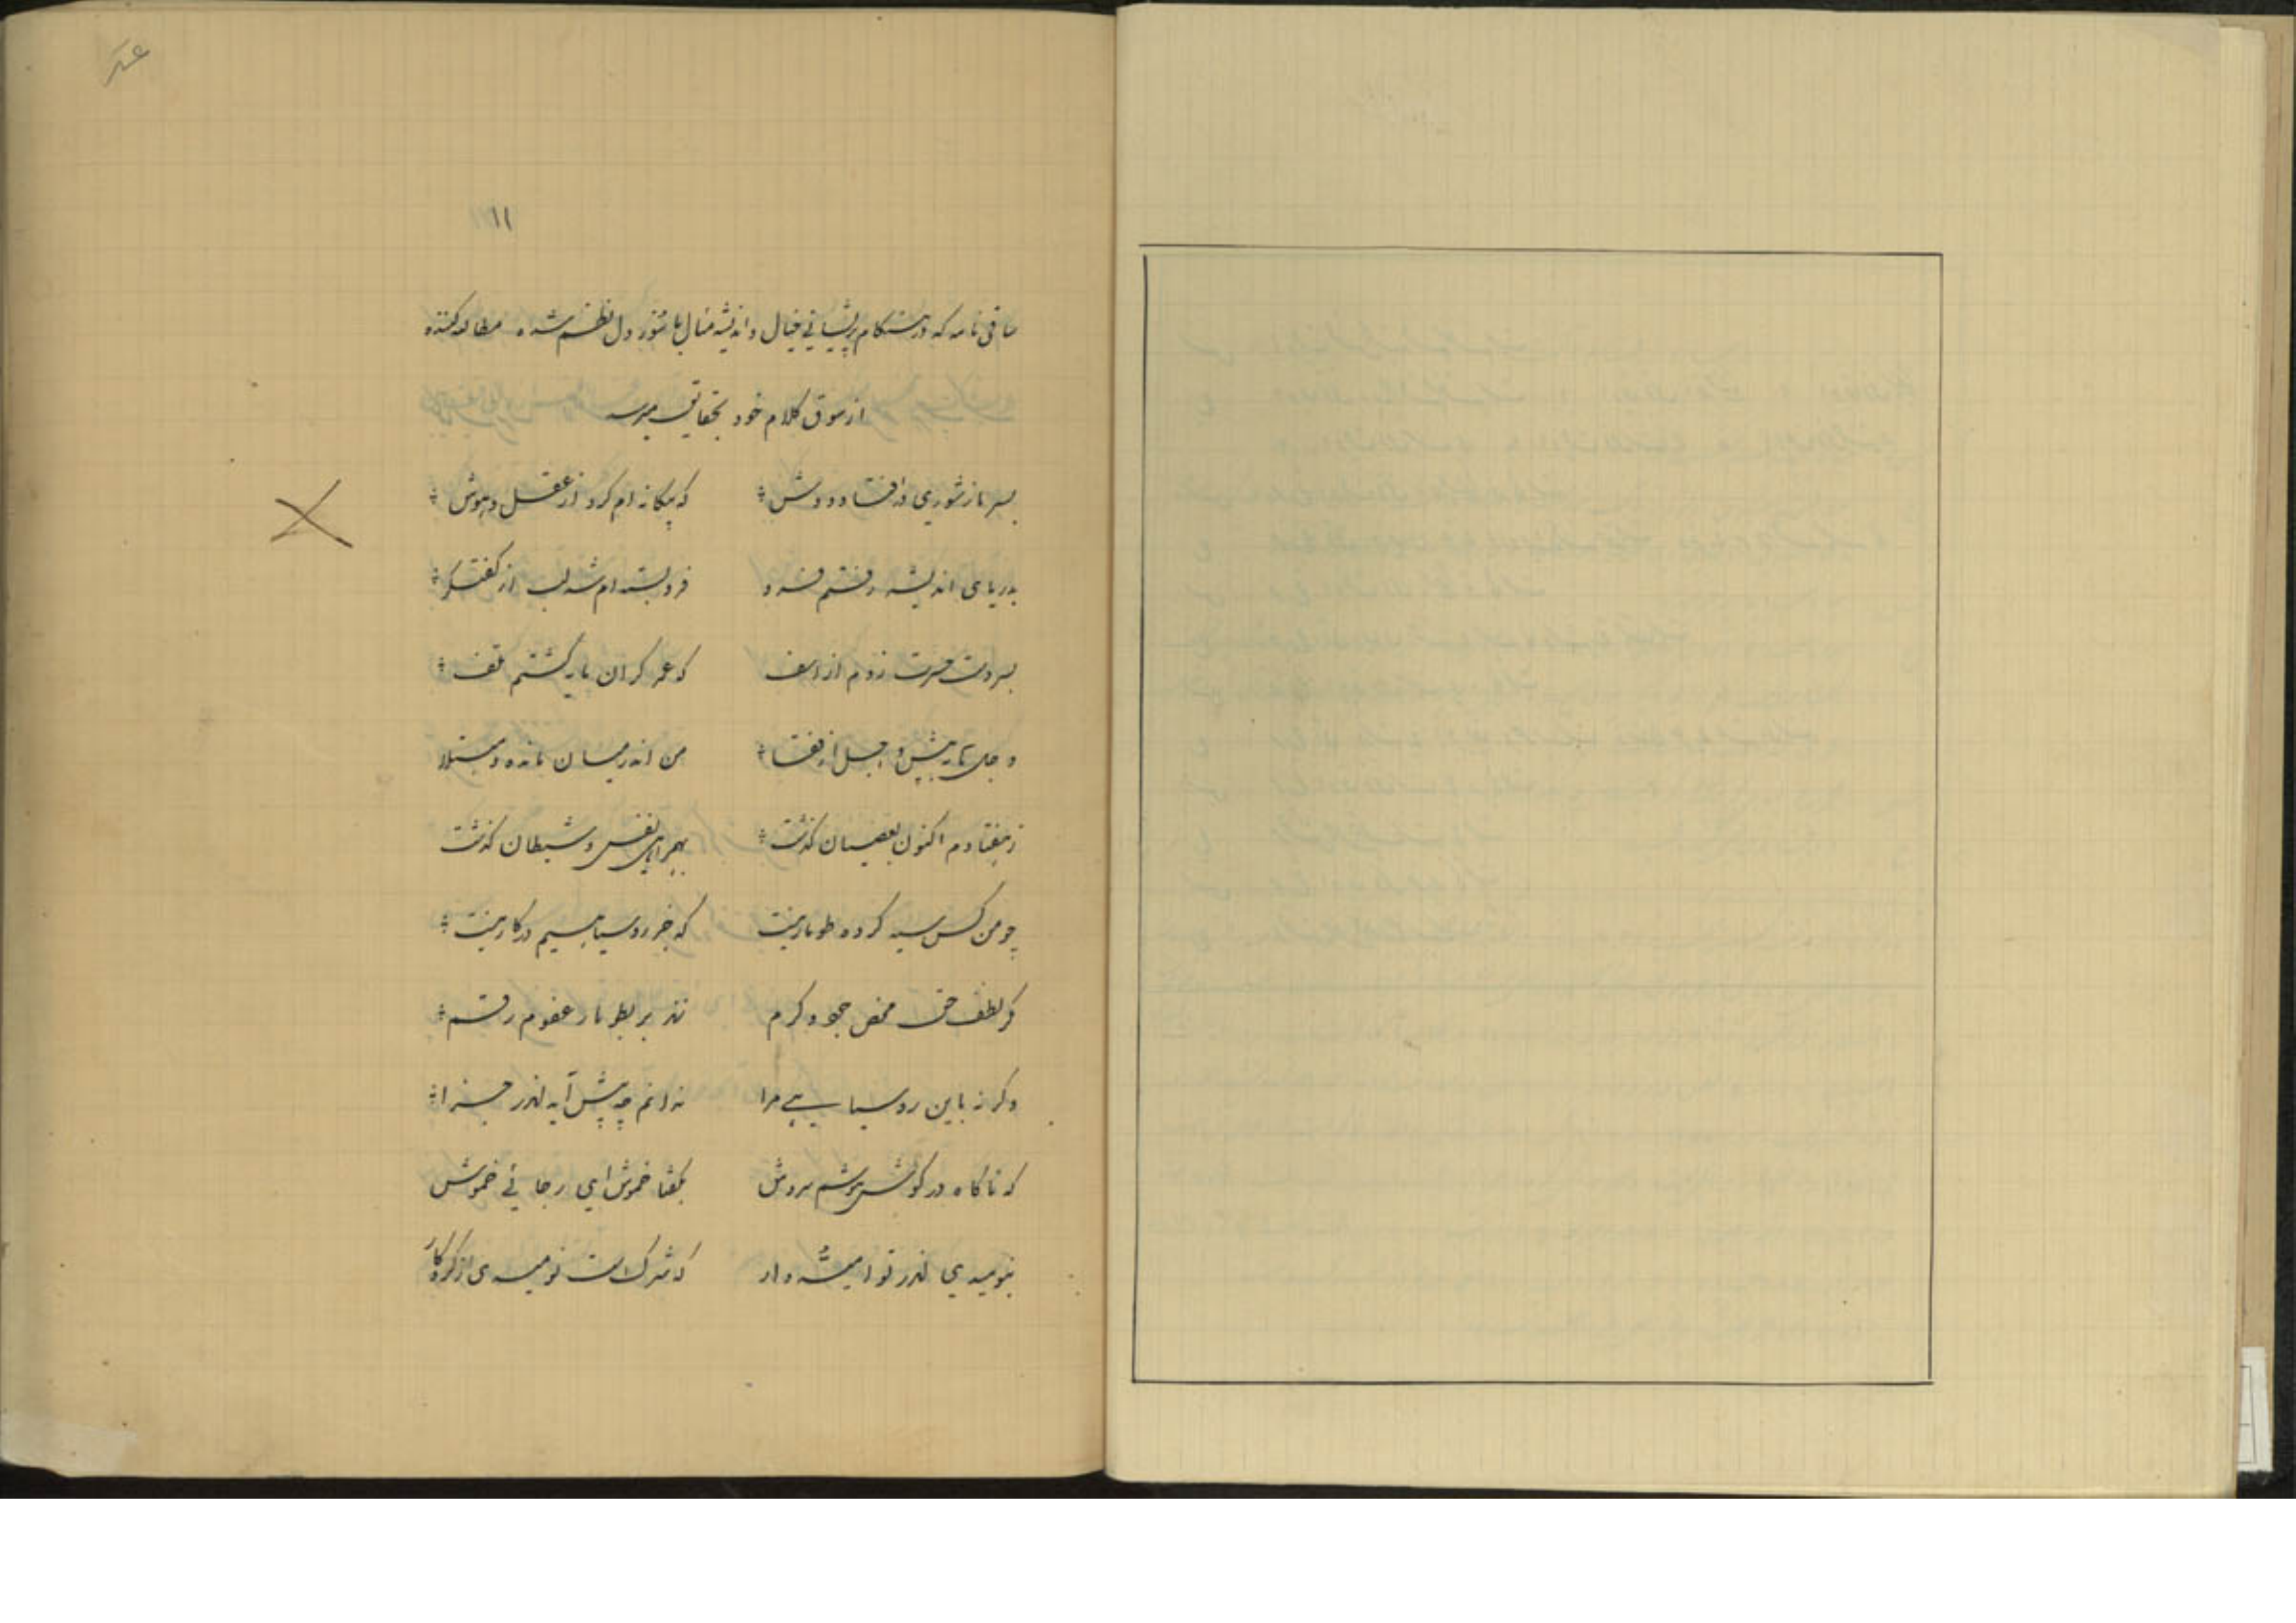 ۱۱
ساقی نامه که در هنگام پریشانی خیال و اندیشه مثال با شور دل نظم شده مطالعه کننده
از سوق کلام خود بحقایق میرسد
بسر باز شوری در افتاد دوش که بیگانه ام کرد از عقل و هوش
بدریای اندیشه رفتم فرو فرو بسته ام شد لب از گفتگو
بسر دست حسرت زدم از اسف که عمر گران مایه گشتم تلف
و جل پیش و اجل از قفا من اندر میان مانده و مبتلا
ز هفتادم اکنون بعصیان گذشت بهمراهی نفس و شیطان گذشت
چو من کس سیه کرده طومار نیست که جز روسیاهیم در کار نیست
گر لطف حق محض جود و کرم زند بر بطومار عفوم رقم
و گرنه باین روسیاهی مرا ندانم چه پیش آید اندر جزا
که ناگاه در گوش هوشم سروش بگفتا خموش ای رجائی خموش
بنومیدی اندر تو امیدوار که شرک است نومیدی از کردگار